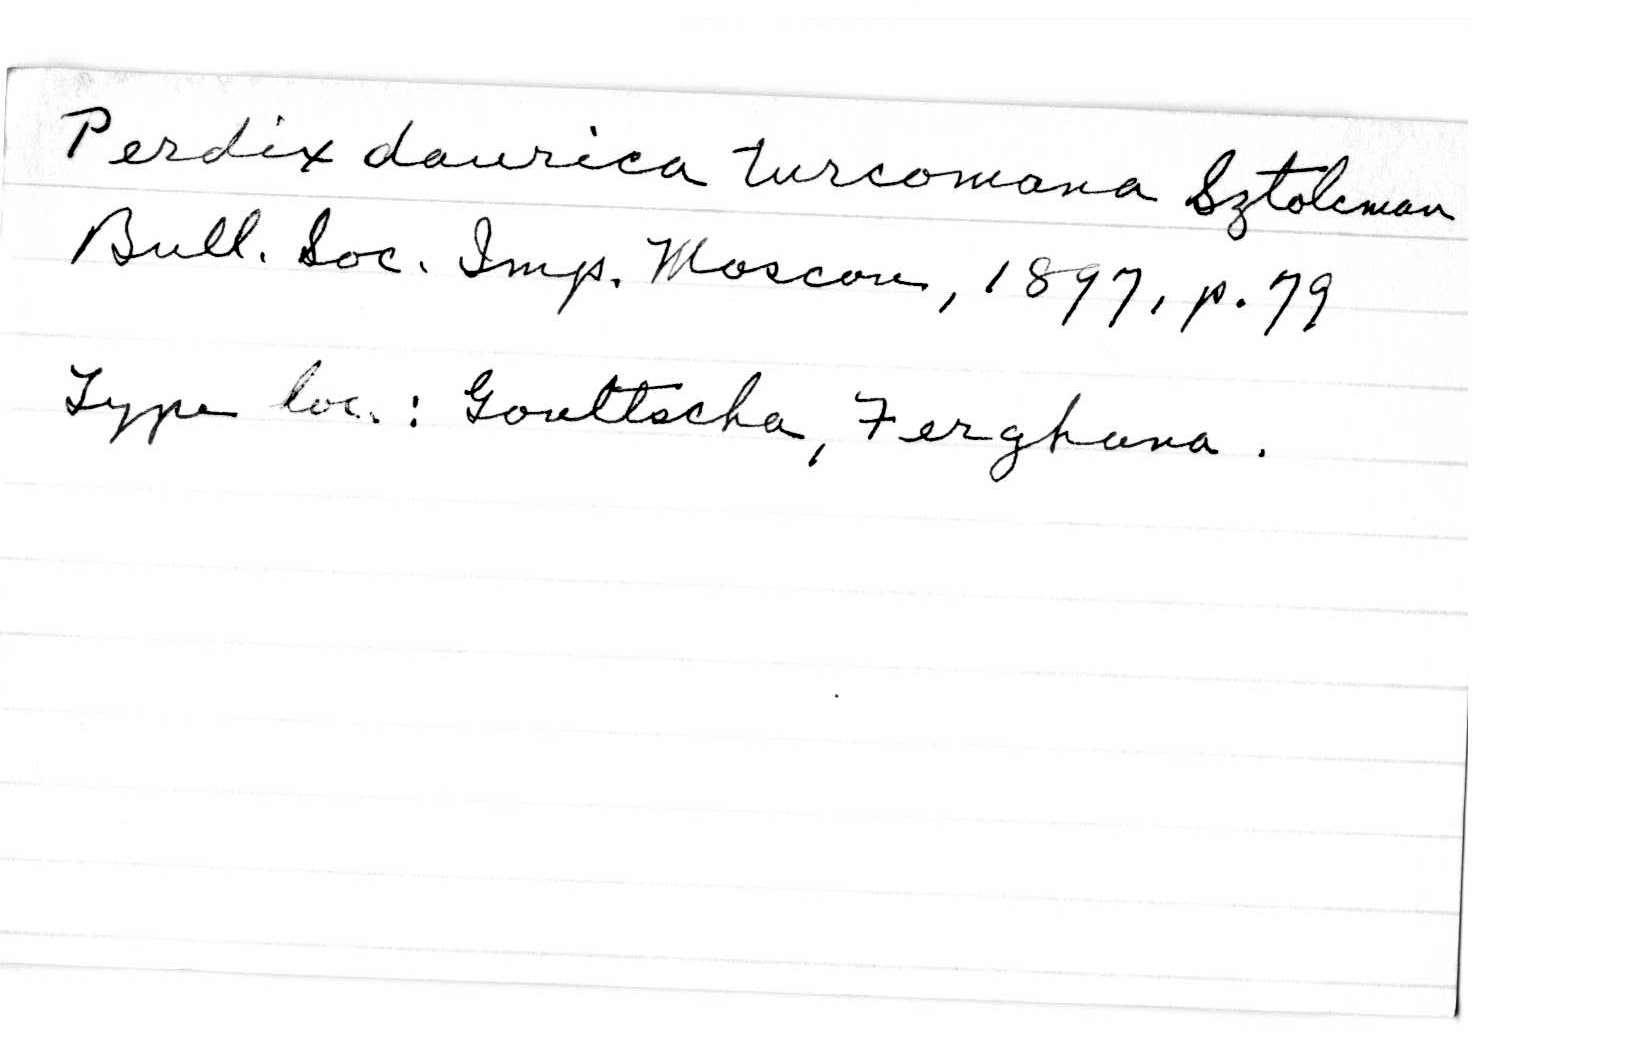 Perdix daurica turcomana Sztolcman
Bull. Soc. Imp. Moscou, 1897, p. 79
Type loc. : Goultscha, Ferghana .